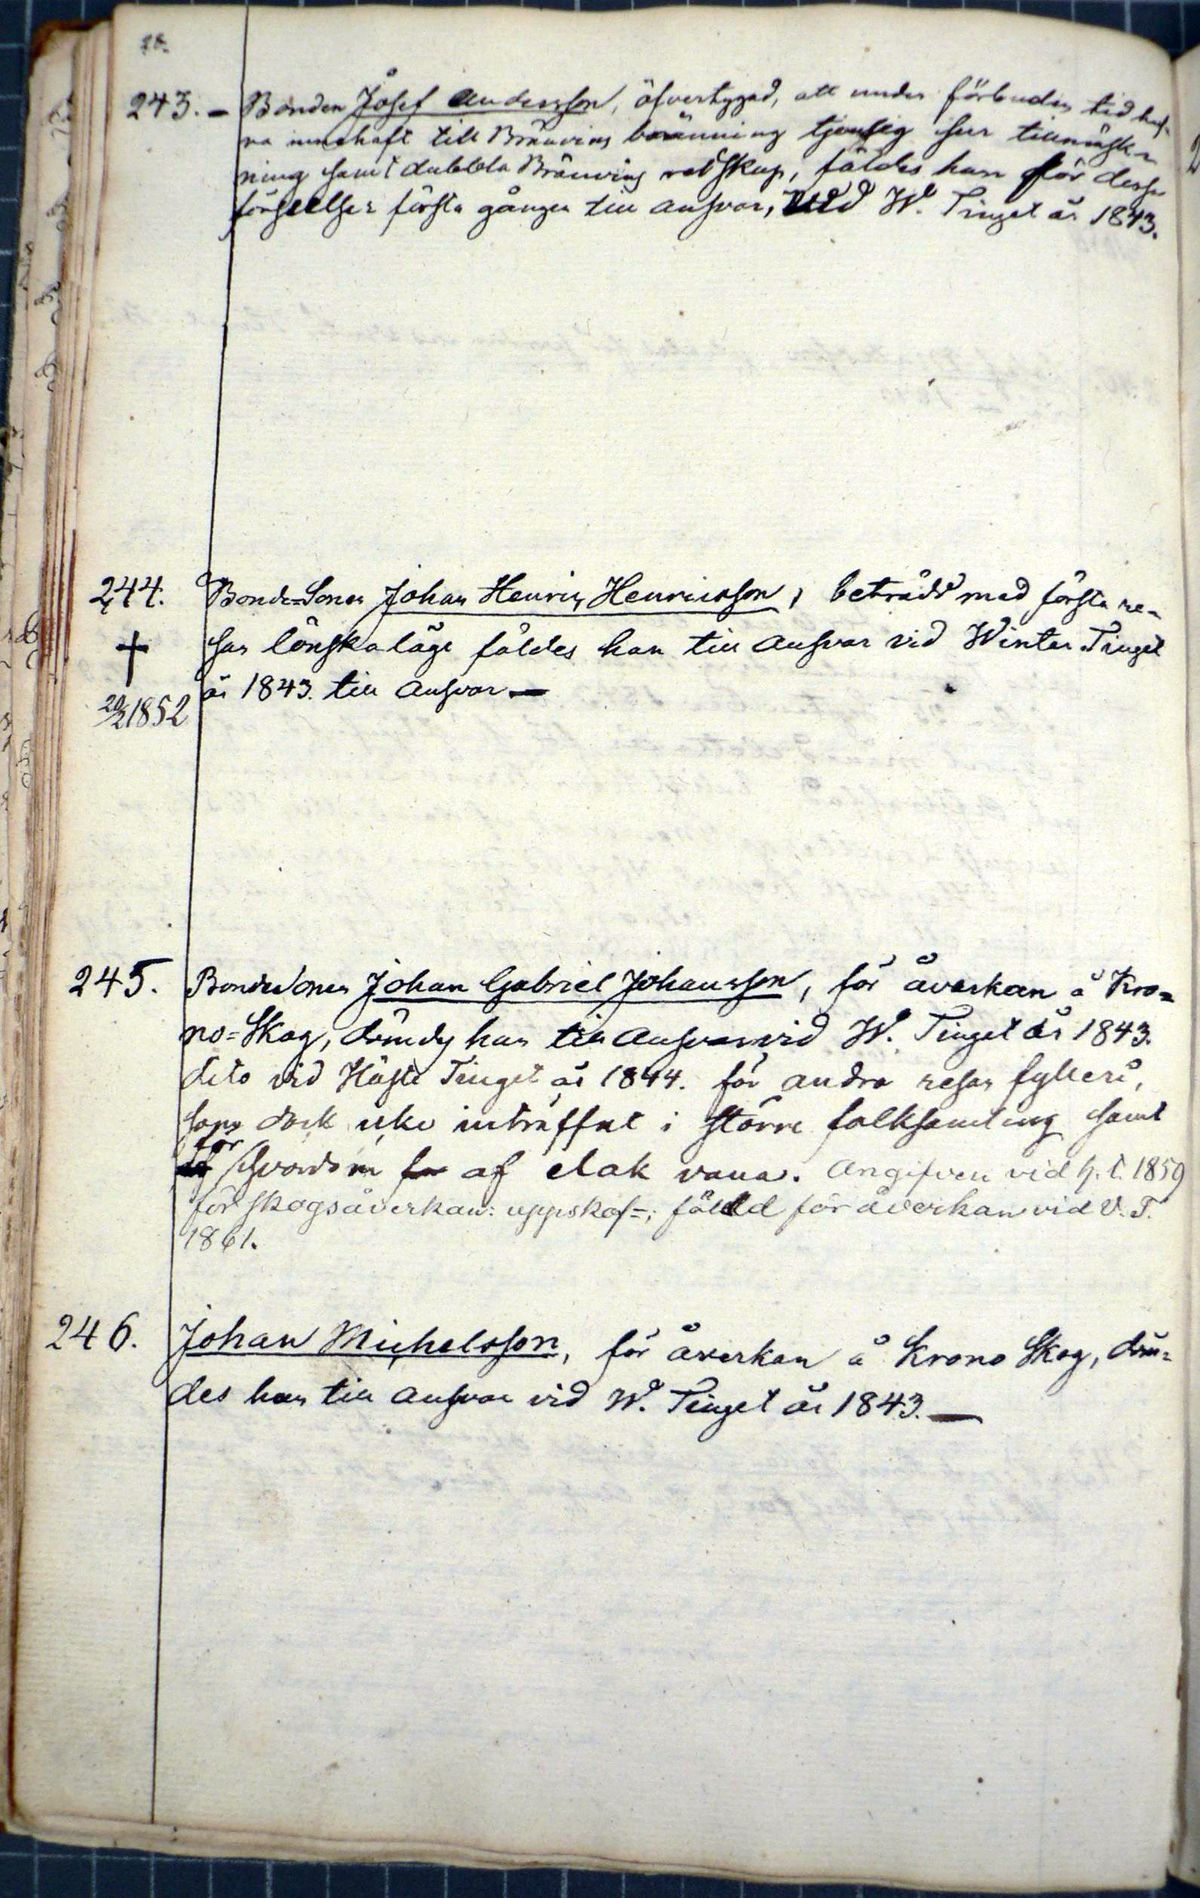 28.
243. – Bonden Josef Andersson, öfvertygad, att under förbuden tid haf-
va innehaft till Bränvins bränning tjenlig tillmäsk-
ning samt dubbla Bränvins redskap, fäldes han för dessa
förseelser första gången till answar, vid W. Tinget år 1843.
244. Bonde-Sonen Johan Henric Henricsson, beträdd med första re-
san lönskaläge fäldes han till answar vid Winter Tinget
år 1843. till answar —
†
20/2 1852
245. BondeSonen Johan Gabriel Johansson, för åverkan å Kro-
no-Skog, dömdes han till answar vid W. Tinget år 1843.
dito vid Höste Tinget år 1844. för andra resan fylleri,
som dock icke inträffat i större folksamling samt
för svordom af elak vana. Angifven vid h. t. 1859
för skogsåverkan: uppskof=; fälld för åverkan vid V. T.
1861.
246. Johan Michelsson, för åverkan å Krono Skog, döm-
des han till answar vid W. Tinget år 1843. —